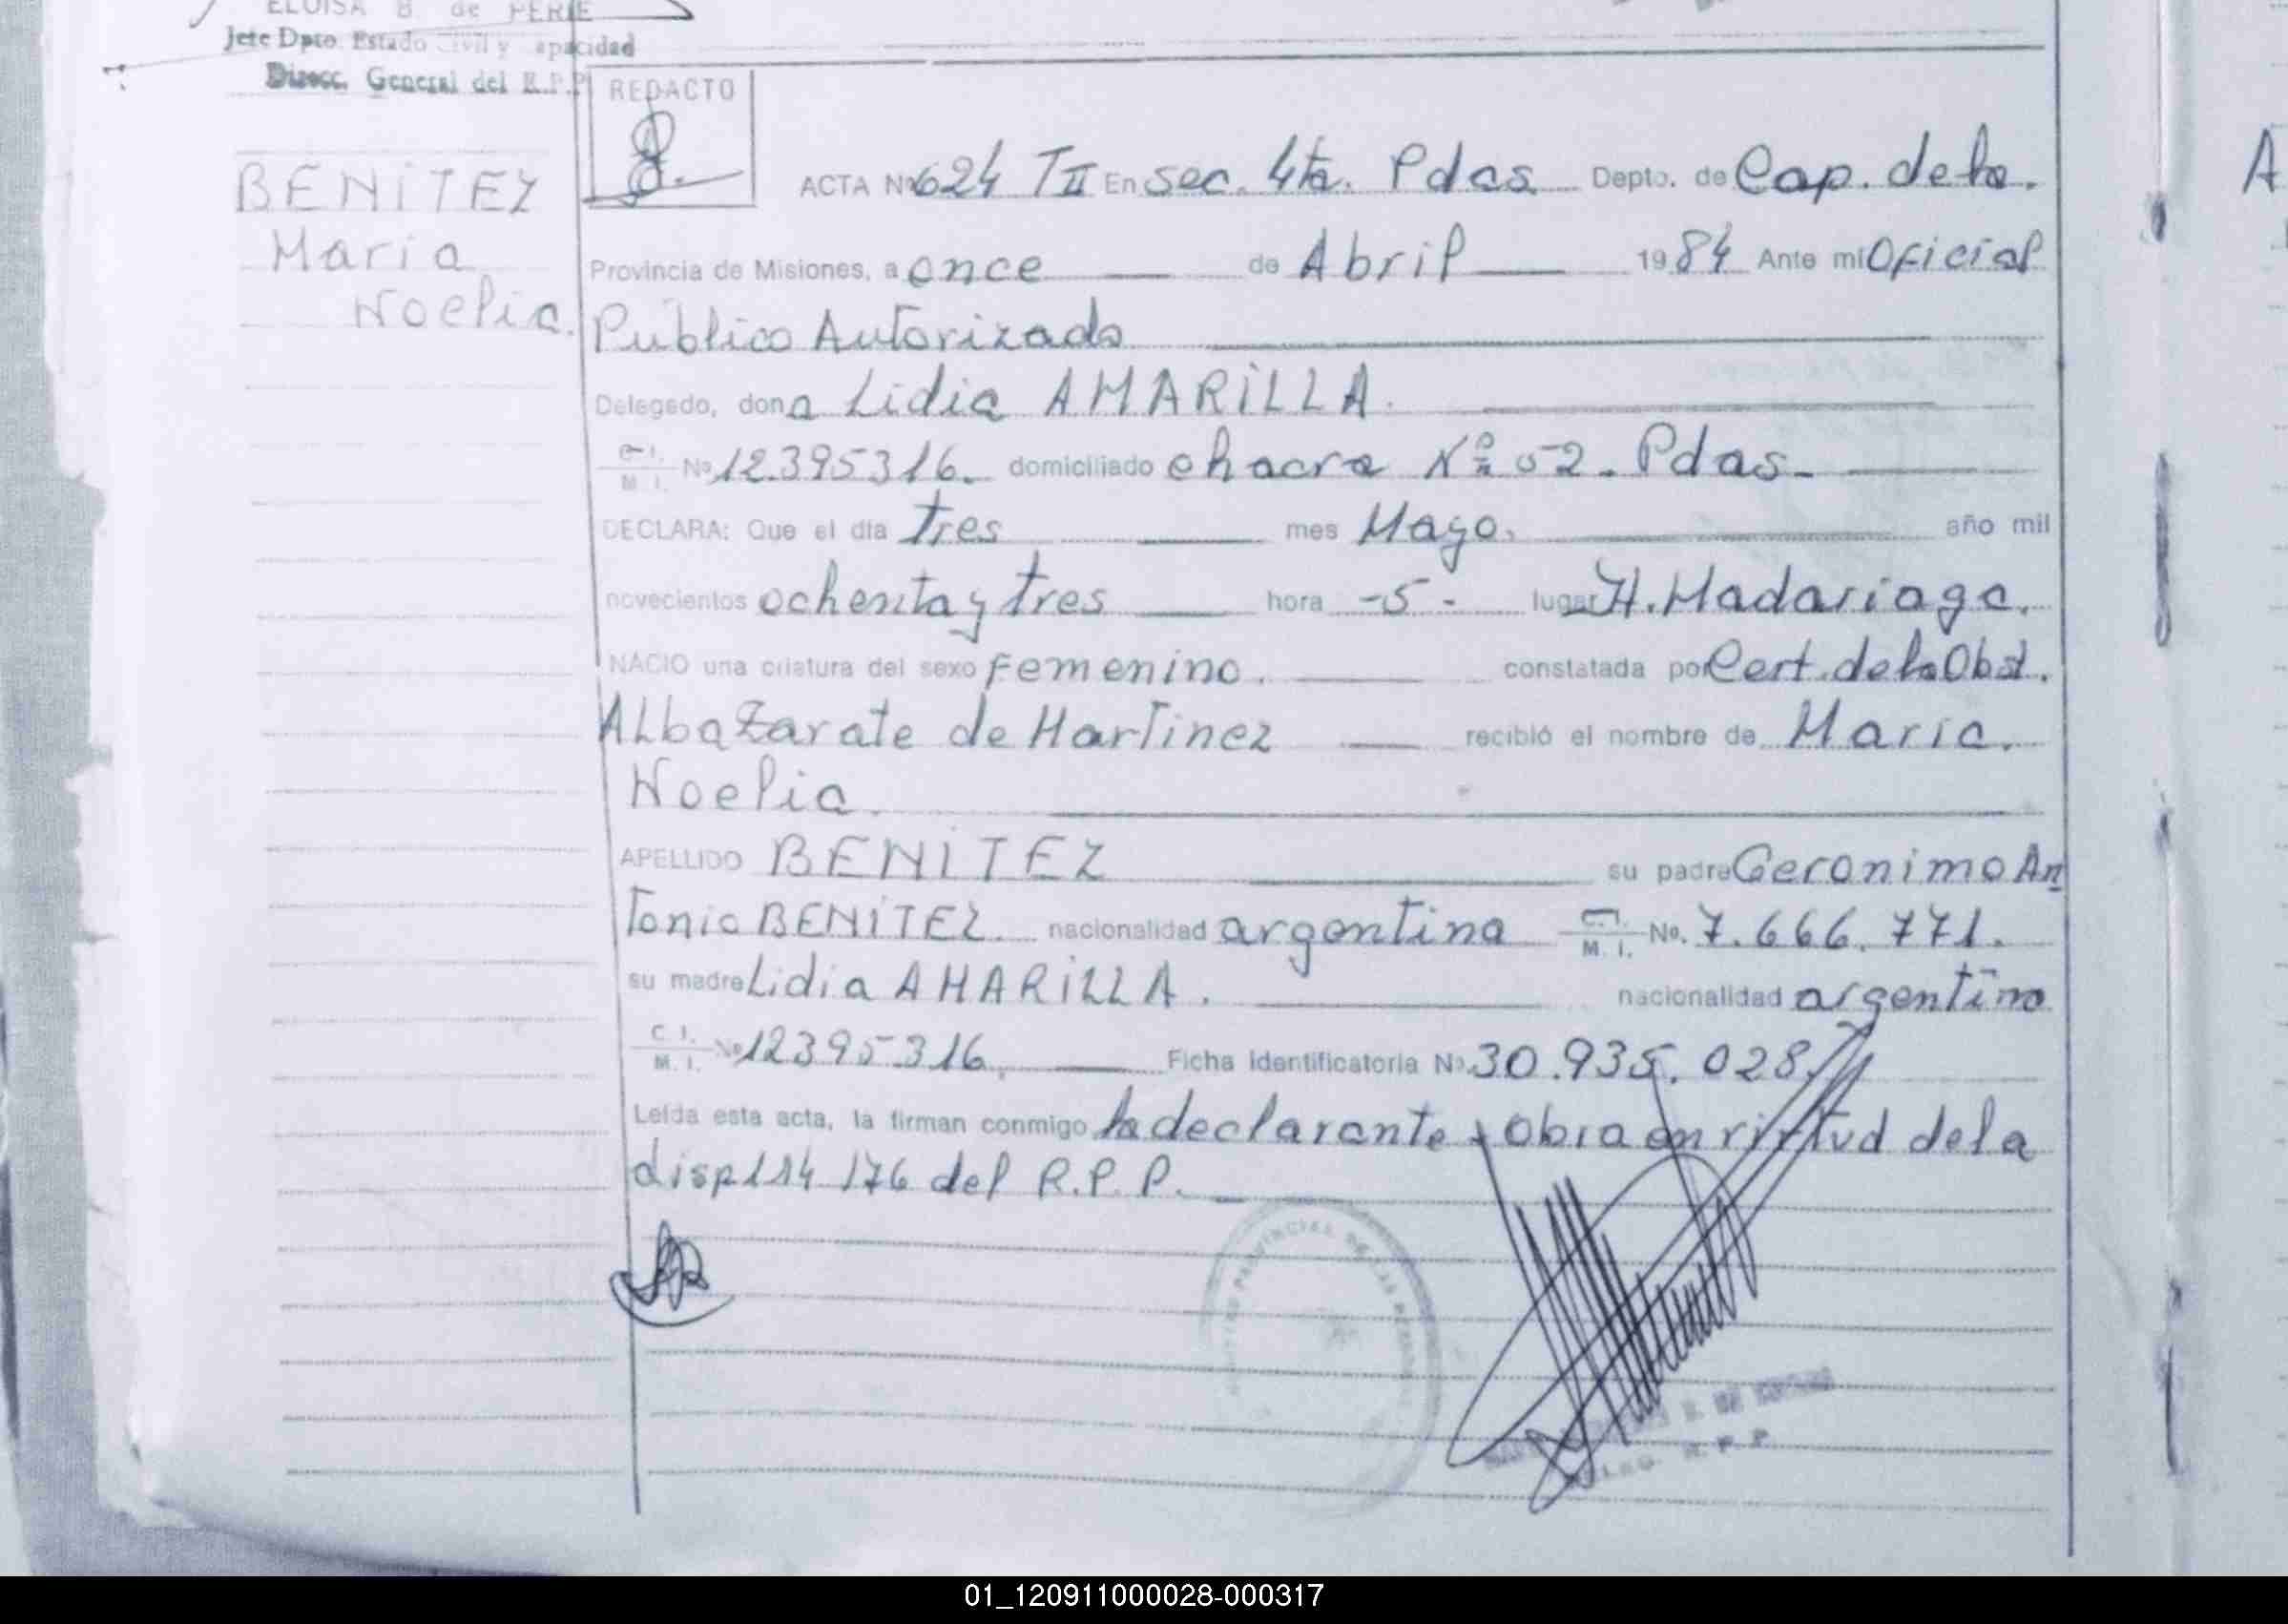 ELOISA B de PERIE
Jefe Dpto. Estado Civil y apacidad
Direcc. General del R.P.P
REDACTO
BENITEZ
Maria
Noelia.
ACTA Nº 624 TII En sec. 4ta. Pdas Depto. de Cap. de la.
Provincia de Misiones, a once de Abril 1984 Ante mi Oficial
Público Autorizado
Delegado, dona Lidia AMARILLA.
C.I. M.I. Nº 12.395316. domiciliado chacra Nº 52. Pdas.
DECLARA: Que el día tres mes Mayo. año mil
novecientos ochenta y tres hora -5- lugar H. Madariaga.
NACIO una criatura del sexo Femenino. constatada por Cert. de la Obst.
Alba Zarate de Martinez recibió el nombre de Maria.
Noelia
APELLIDO BENITEZ su padre Geronimo An
Tonio BENITEZ. nacionalidad argentina C.I. M.I. No. 7.666.771.
su madre Lidia AMARILLA. nacionalidad argentina
C.I. M.I. Nº 12395316. Ficha identificatoria Nº 30.935.028
Leída esta acta, la firman conmigo la declarante y Obra en virtud de la
disp 114 176 del R.P.P.
R.P.P.
A
01_120911000028-000317